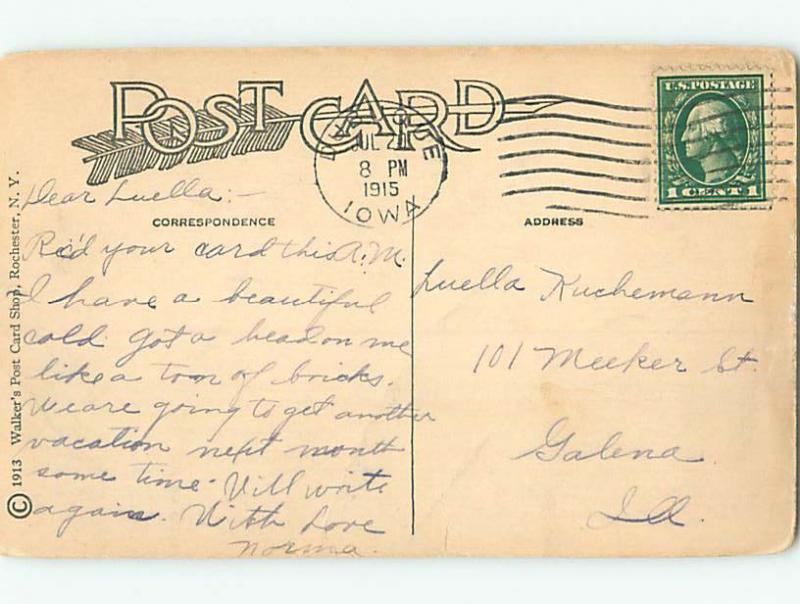 POST CARD
DUBUQUE
JUL 2
8 PM
1915
IOWA
U.S. POSTAGE
1 CENT 1
CORRESPONDENCE
ADDRESS
© 1913 Walker's Post Card Shop, Rochester, N. Y.
Dear Luella:-
Rec'd your card this A.M.
I have a beautiful
cold got a head on me
like a ton of bricks.
We are going to get another
vacation next month
some time. Will write
again. With Love
Norma.
Luella Kuchemann
101 Meeker St.
Galena
Ill.